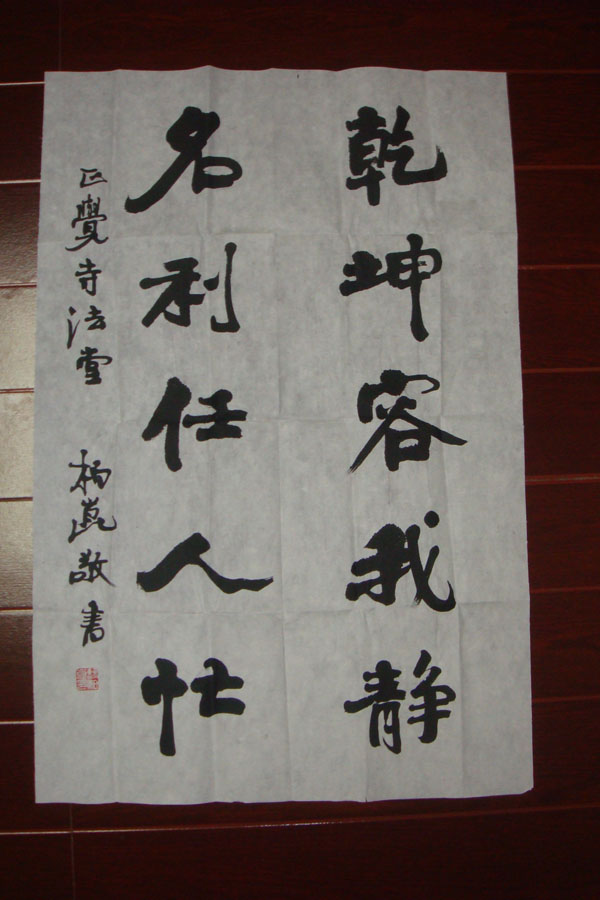 乾坤容我静
名利任人忙
正覺寺法堂
敬书